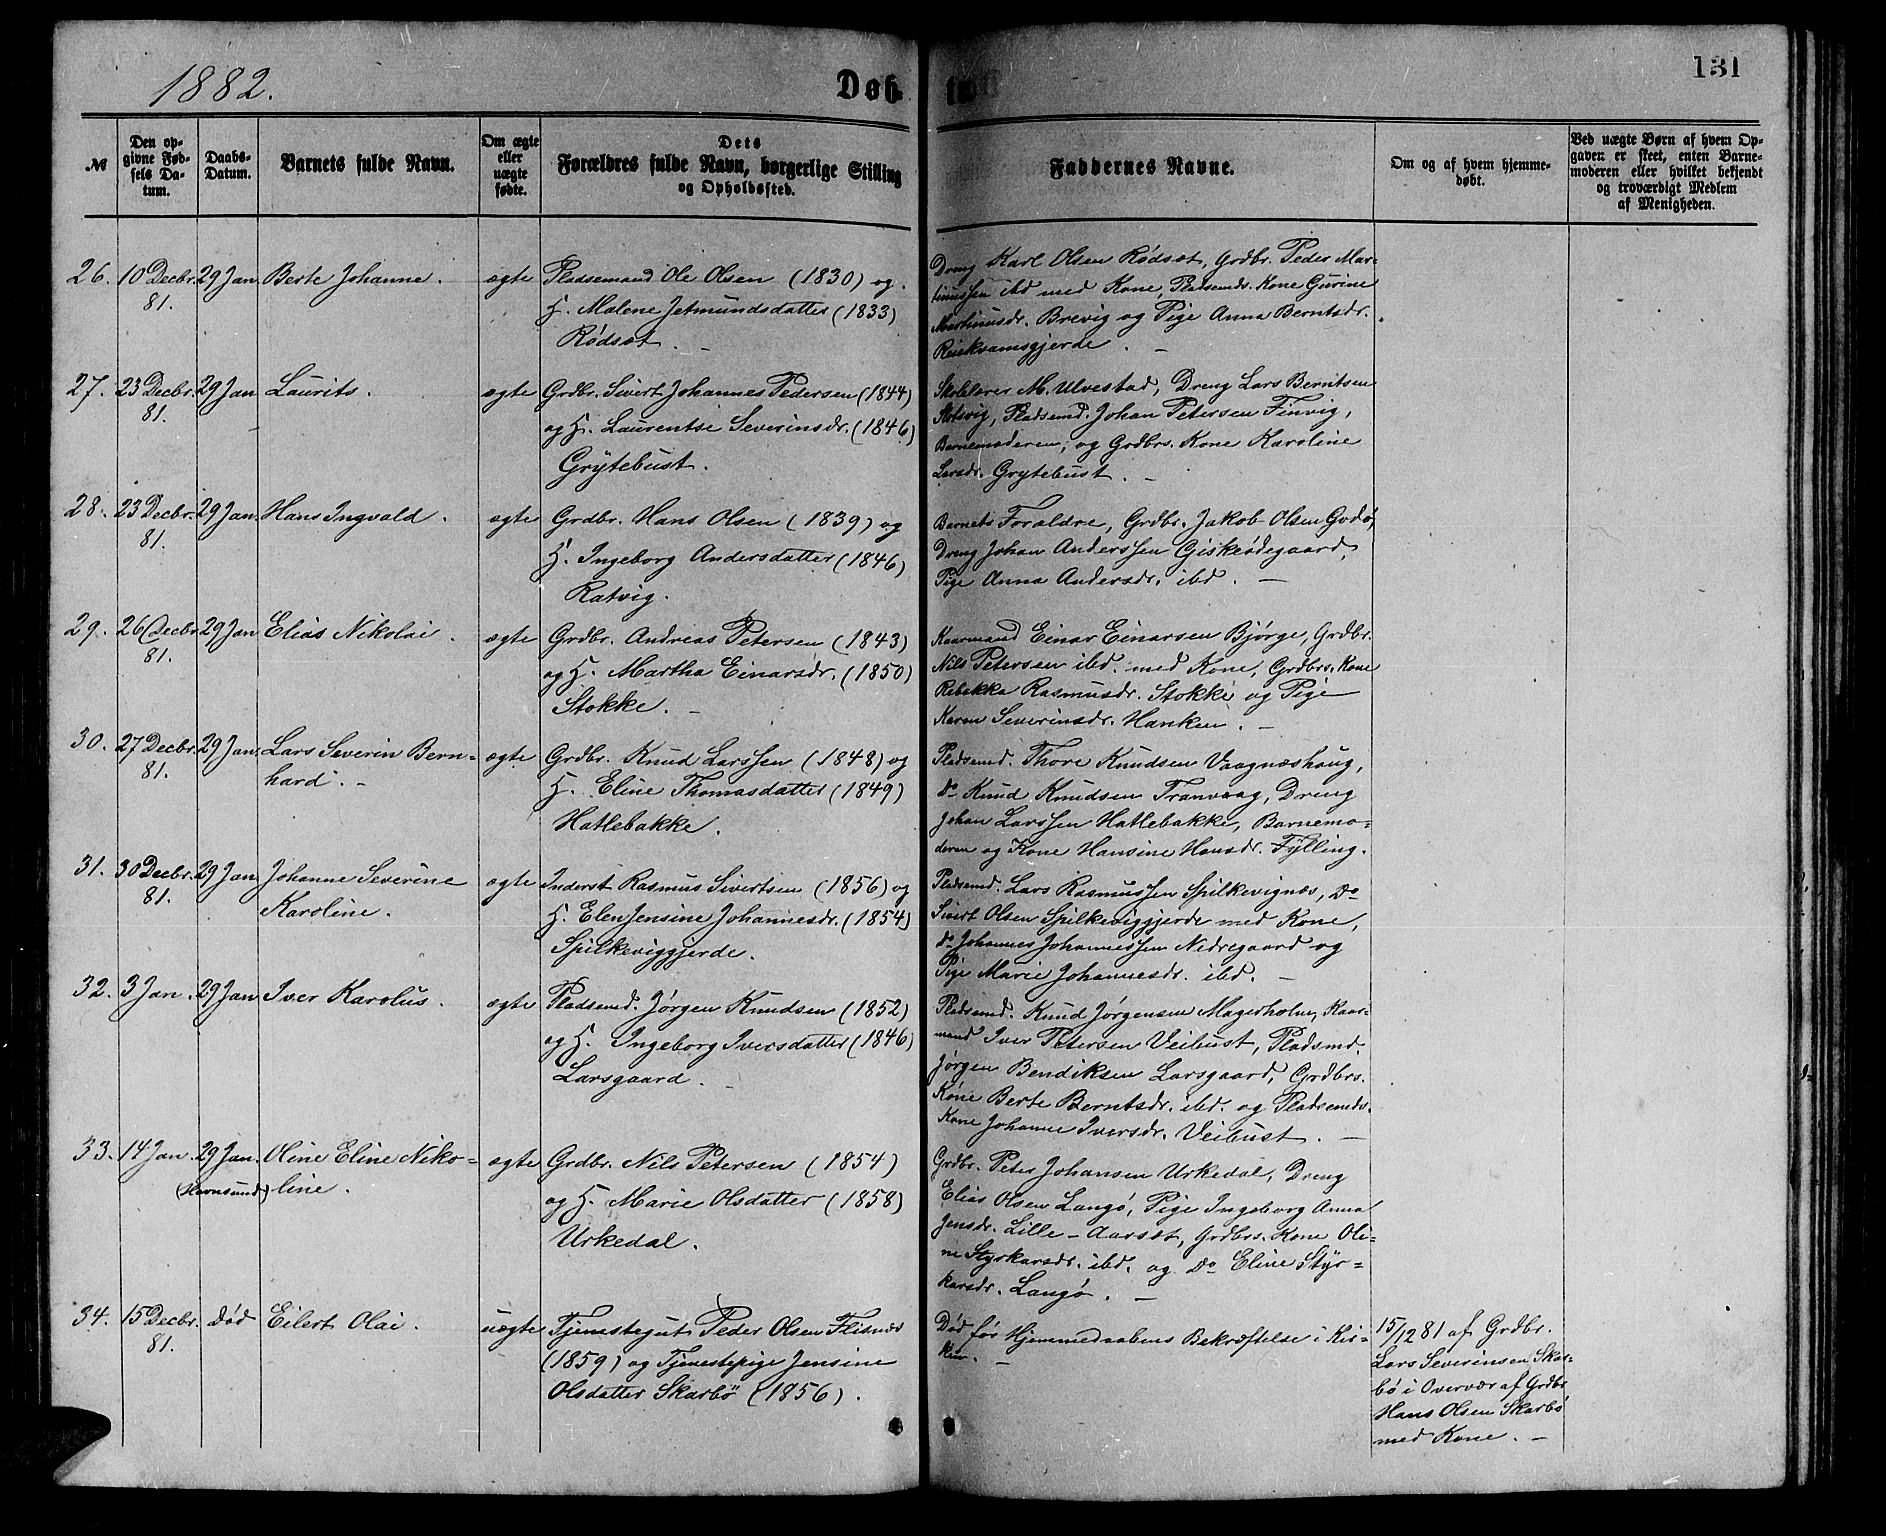 1882.
Døb
131
№
Den op-
givne Fød-
sels Da-
tum.
Daabs-
Datum.
Barnets fulde Navn.
Om ægte
eller
uægte
fødte.
Dets
Forældres fulde Navn, borgerlige Stilling
og Opholdssted.
Faddernes Navne.
Om og af hvem hjemme-
døbt.
Ved uægte Børn af hvem Op-
gaven er skeet, enten Barne-
moderen eller hvilket bekjendt
og troværdigt Medlem
af Menigheden.
26. 10 Decbr. 29 Jan Berte Johanne. ægte Pladsemand Ole Olsen (1830) og
81. H. Malene Jetmundsdatter (1833)
Rødsæt. –
Dreng Karl Olsen Rødsæt, Grdbr. Peder Mar-
tinussen ibd med Kone, Pladsemds. Kone Gurine
Martinusdr. Brevig og Pige Anna Berntsdr.
Reiekvamsgjerde. –
27. 23 Decbr. 29 Jan Laurits. ægte Grdbr. Sivert Johannes Pedersen (1844)
81. og H. Laurentse Severinsdr. (1846)
Grytebust.
Skolelærer M. Ulvestad, Dreng Lars Berntsen
Slotsvig, Pladsemd. Johan Petersen Finvig,
Barnemoderen, og Grdbrs. Kone Karoline
Larsdr. Grytebust. –
28. 23 Decbr. 29 Jan. Hans Ingvald. ægte Grdbr. Hans Olsen (1839) og
81. H. Ingeborg Andersdatter (1846)
Ratvig.
Barnets Forældre, Grdbr. Jakob Olsen Godø,
Dreng Johan Anderssen Giskeødegaard,
Pige Anna Andersdr. ibd. –
29. 26 Decbr 29 Jan Elias Nikolai. ægte Grdbr. Andreas Petersen (1843)
81. og H. Martha Einarsdr. (1850)
Stokke. –
Kaarmand Einar Einarsen Bjørge, Grdbr.
Nils Petersen ibd. med Kone, Grdbrs. Kone
Rebekka Rasmusdr. Stokke og Pige
Karen Severinsdr. Hanken. –
30. 27 Decbr. 29 Jan. Lars Severin Bern- ægte Grdbr. Knud Larssen (1848) og
81. hard. – H. Eline Thomasdatter (1849)
Hatlebakke.
Pladsemd. Thore Knudsen Vaagnæshaug,
Do Knud Knudsen Tranvaag, Dreng
Johan Larssen Hatlebakke, Barnemo-
deren og Kone Hansine Hansdr. Fylling.
31. 30 Decbr. 29 Jan. Johanne Severine ægte Inderst Rasmus Sivertsen (1856) og
81. Karoline. H. Elen Jensine Johannesdr. (1854)
Spilkeviggjerde.
Pladsemd. Lars Rasmussen Spilkevignæs, Do
Sivert Olsen Spilkeviggjerde med Kone,
Do Johannes Johannessen Nedregaard og
Pige Marie Johannesdr. ibd. –
32. 3 Jan. 29 Jan Iver Karolus. ægte Pladsemd. Jørgen Knudsen (1852)
og H. Ingeborg Iversdatter (1846)
Larsgaard. –
Pladsemd. Knud Jørgensen Magerholm, Kaar-
mand Iver Petersen Veibust, Pladsmd.
Jørgen Bendiksen Larsgaard, Grdbrs.
Kone Berte Berntsdr. ibd. og Pladsemds.
Kone Johanne Iversdr. Veibust. –
33. 14 Jan. 29 Jan. Oline Eline Niko- ægte Grdbr. Nils Petersen (1854)
(Havnsund) line. og H. Marie Olsdatter (1858)
Urkedal.
Grdbr. Peter Johansen Urkedal, Dreng
Elias Olsen Langø, Pige Ingeborg Anna
Jensdr. Lille-Aarsæt, Grdbrs. Kone Oli-
ne Styrkarsdr. ibd. og Do Eline Styr-
karsdr. Langø. –
34. 15 Decbr. Død Eilert Olai. uægte Tjenestegut Peder Olsen Flisnæs
81. (1859) og Tjenestepige Jensine
Olsdatter Skarbö (1856).
Død før Hjemmedaabens Bekræftelse i Kir-
ken. –
15/12 81 af Grdbr.
Lars Severinsen Skar-
bø i Overvær af Grdbr
Hans Olsen Skarbø
med Kone. –